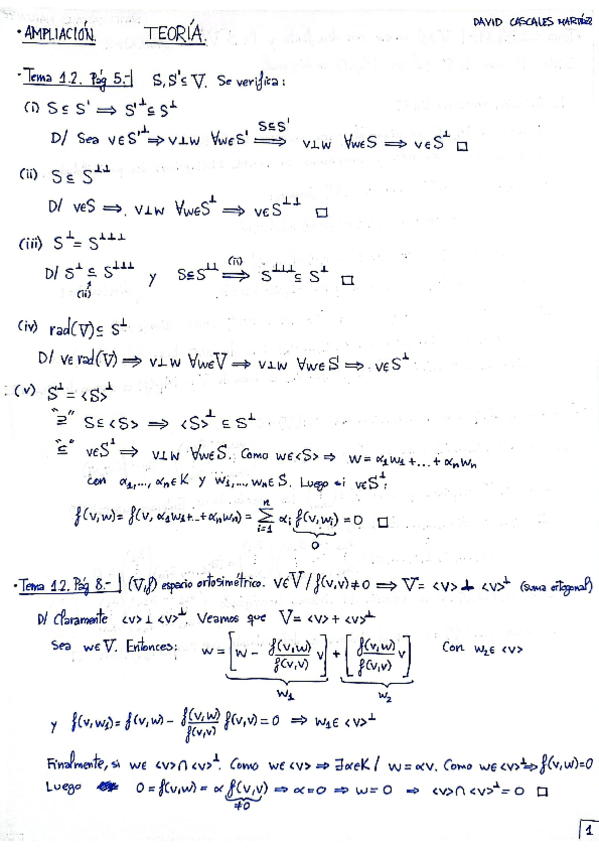 · AMPLIACIÓN. TEORÍA. DAVID CASCALES MARTÍNEZ
· Tema 1.2. Pág 5.- S, S' ⊆ V. Se verifica:
(i) S ⊆ S' ⟹ S'^⊥ ⊆ S^⊥
D/ Sea v∈S'^⊥ ⟹ v⊥w ∀w∈S' ⟹ (S⊆S') v⊥w ∀w∈S ⟹ v∈S^⊥ □
(ii) S ⊆ S^⊥⊥
D/ v∈S ⟹ v⊥w ∀w∈S^⊥ ⟹ v∈S^⊥⊥ □
(iii) S^⊥ = S^⊥⊥⊥
D/ S^⊥ ⊆ (ii) S^⊥⊥⊥ y S⊆S^⊥⊥ ⟹ (ii) S^⊥⊥⊥ ⊆ S^⊥ □
(iv) rad(V) ⊆ S^⊥
D/ v∈rad(V) ⟹ v⊥w ∀w∈V ⟹ v⊥w ∀w∈S ⟹ v∈S^⊥
(v) S^⊥ = <S>^⊥
"⊇" S⊆<S> ⟹ <S>^⊥ ⊆ S^⊥
"⊆" v∈S^⊥ ⟹ v⊥w ∀w∈S. Como w∈<S> ⟹ w = α₁w₁ + ... + αₙwₙ
con α₁,..., αₙ∈K y w₁,..., wₙ∈S. Luego si v∈S^⊥:
f(v,w) = f(v, α₁w₁+...+αₙwₙ) = Σ_{i=1}^{n} αᵢ f(v,wᵢ) = 0 □
0
· Tema 1.2. Pág 8.- (V,f) espacio ortosimétrico. v∈V / f(v,v)≠0 ⟹ V = <v> ⊥ <v>^⊥ (suma ortogonal)
D/ Claramente <v> ⊥ <v>^⊥. Veamos que V = <v> + <v>^⊥
Sea w∈V. Entonces: w = [w - f(v,w)/f(v,v) v] + [f(v,w)/f(v,v) v] Con w₂∈ <v>
w₁ w₂
y f(v,w₁) = f(v,w) - f(v,w)/f(v,v) f(v,v) = 0 ⟹ w₁∈ <v>^⊥
Finalmente, si w∈ <v>∩<v>^⊥. Como w∈<v> ⟹ ∃α∈K / w = αv. Como w∈<v>^⊥ ⟹ f(v,w)=0
Luego 0 = f(v,w) = α f(v,v) ⟹ α=0 ⟹ w=0 ⟹ <v>∩<v>^⊥ = 0 □
≠0
1